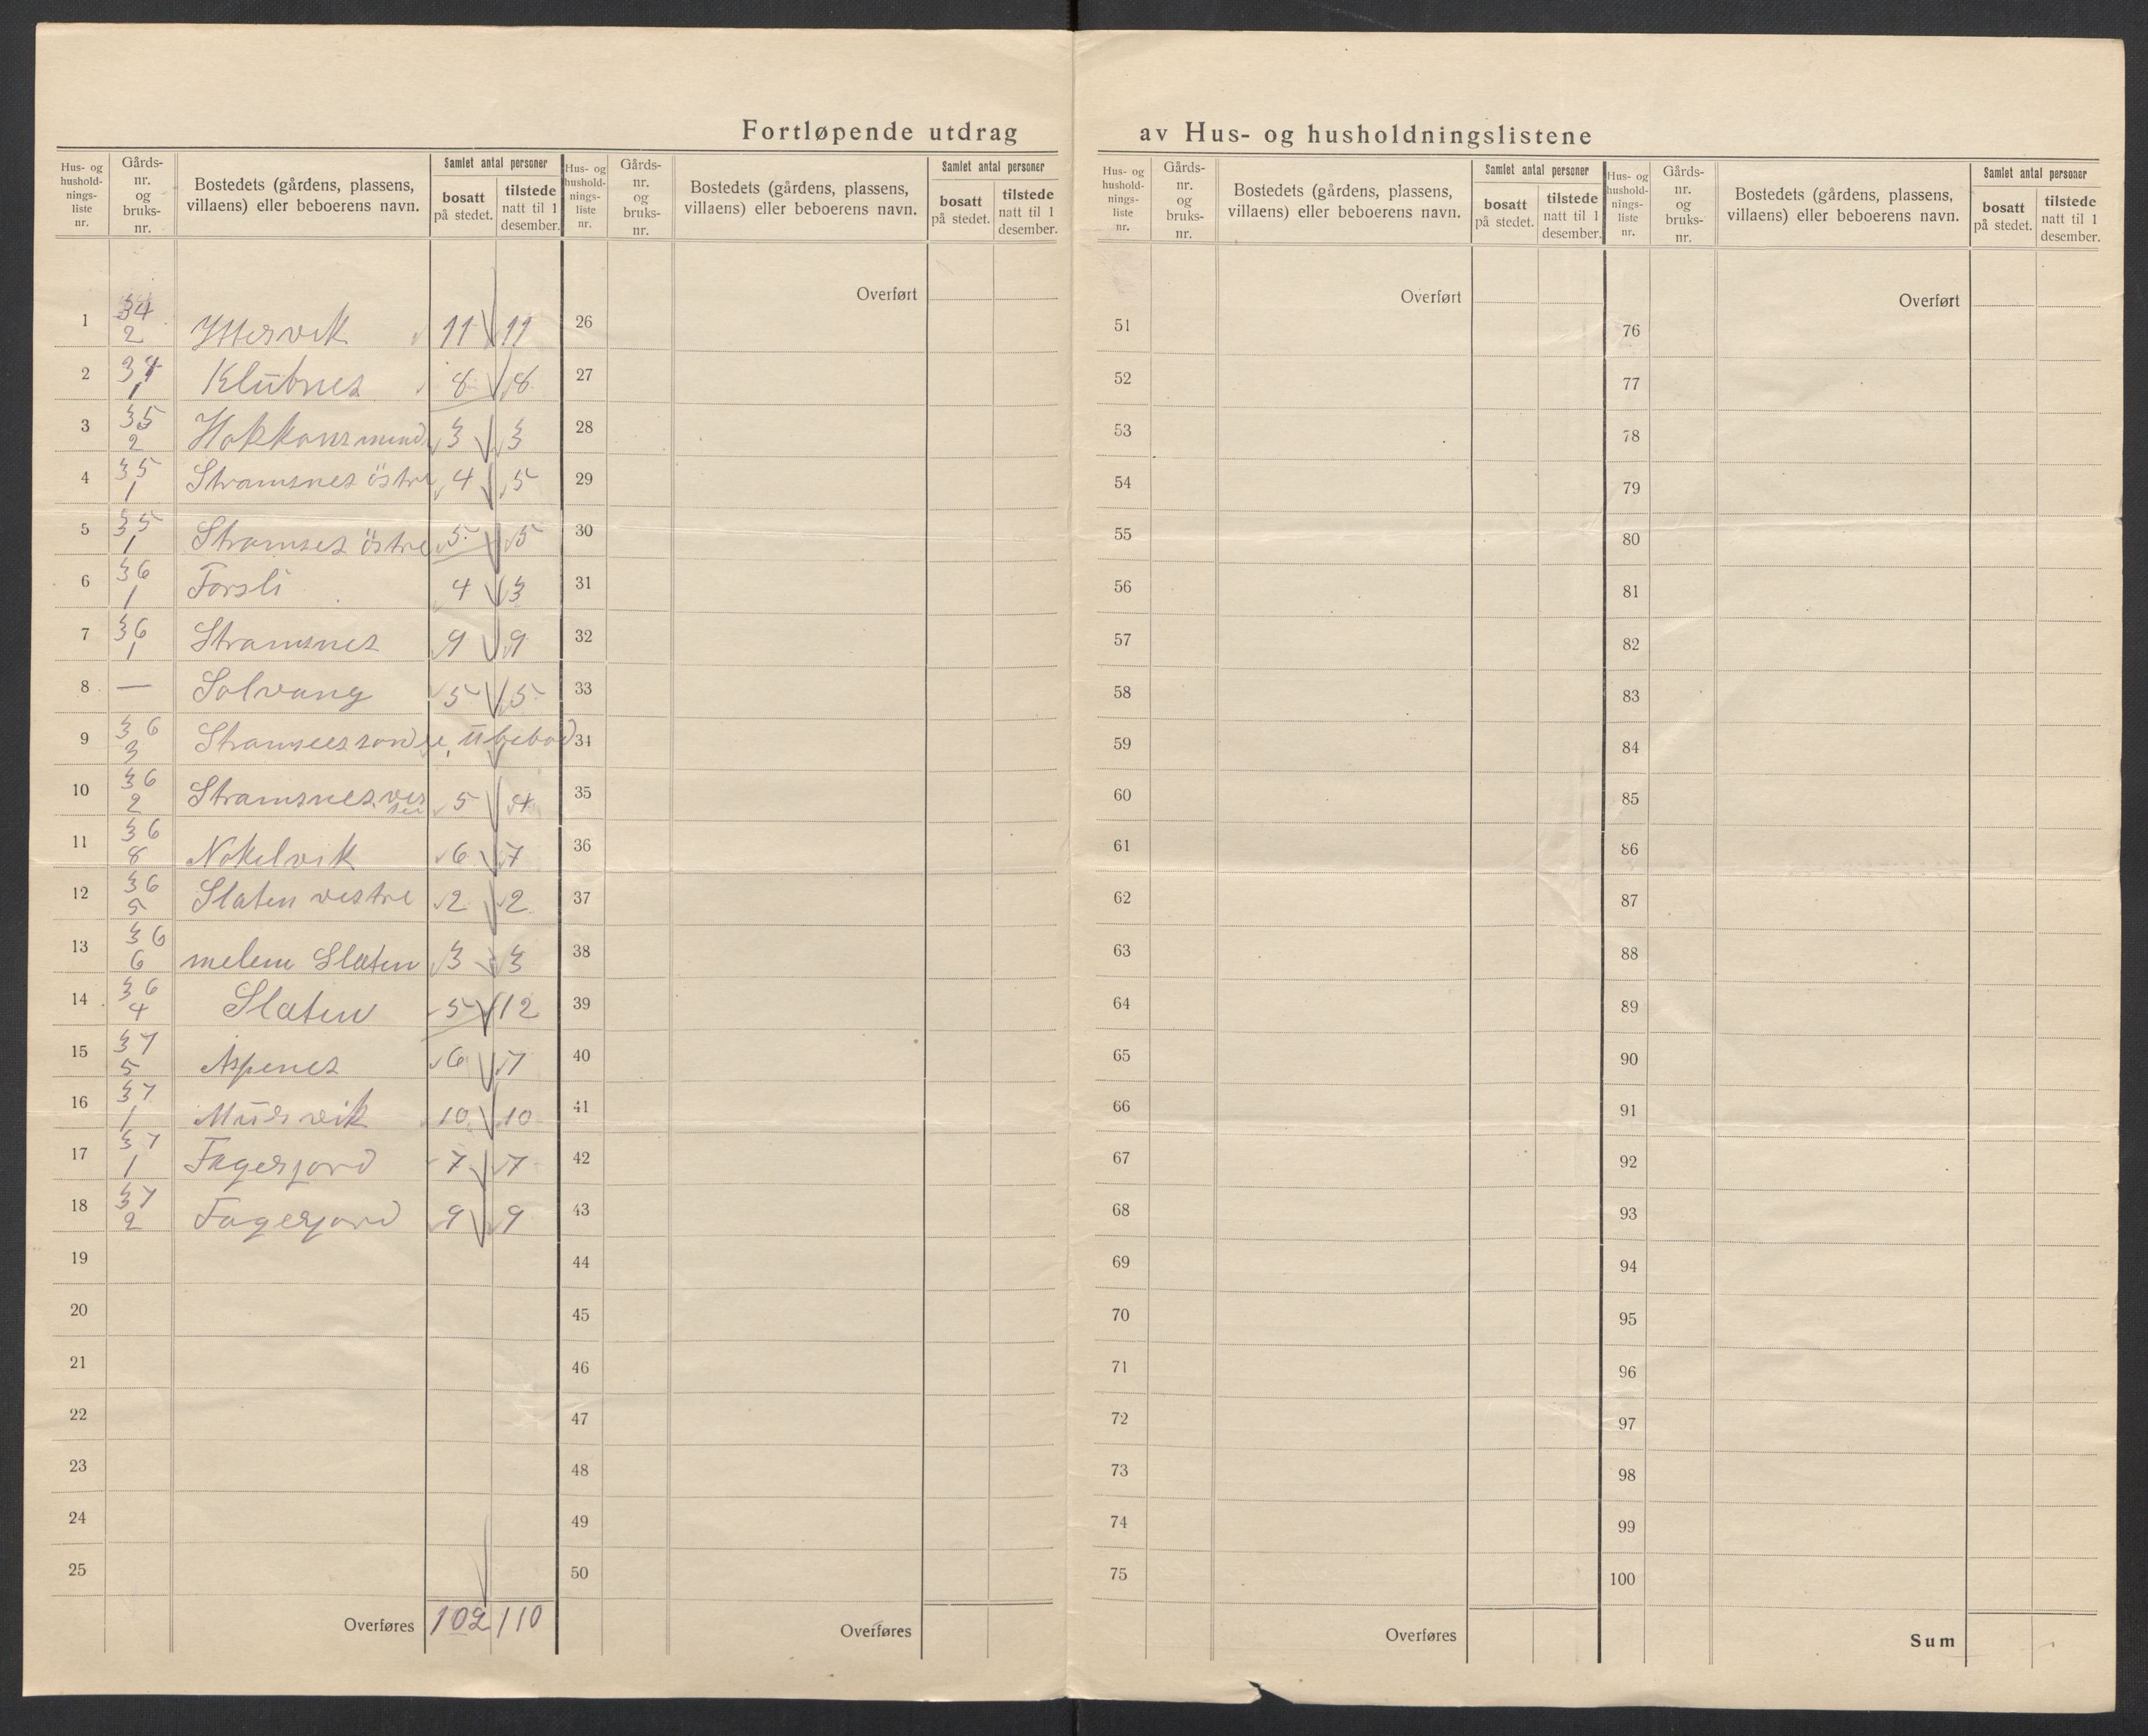 Fortløpende utdrag av Hus- og husholdningslistene
Hus- og husholdnings-liste nr. | Gårds-nr. og bruks-nr. | Bostedets (gårdens, plassens, villaens) eller beboerens navn. | Samlet antal personer | bosatt på stedet. | tilstede natt til 1 desember.
1 | 34 2 | Yttervik | 11 | 11
2 | 34 1 | Klübnes | 8 | 8
3 | 35 2 | Hakkansmund | 3 | 3
4 | 35 1 | Stramsnes östre | 4 | 5
5 | 35 1 | Stramses östre | 5 | 5
6 | 36 1 | Forsli | 4 | 3
7 | 36 1 | Stramsnes | 9 | 9
8 | — | Solvang | 5 | 5
9 | 36 3 | übebod
10 | 36 2 | Stramsnes | 5 | 4
11 | 36 8 | Nakelvik | 6 | 7
12 | 36 5 | Slaten vestre | 2 | 2
13 | 36 6 | melem Slæten | 3 | 3
14 | 36 4 | Slæten | 5 | 12
15 | 37 5 | Aspenes | 6 | 7
16 | 37 1 | 10 | 10
17 | 37 1 | Fagerjord | 7 | 7
18 | 37 2 | Fagerjord | 9 | 9
19
20
21
22
23
24
25
Overføres | 102 | 110
Hus- og husholdnings-liste nr. | Gårds-nr. og bruks-nr. | Bostedets (gårdens, plassens, villaens) eller beboerens navn. | Samlet antal personer | bosatt på stedet. | tilstede natt til 1 desember.
Overført
26
27
28
29
30
31
32
33
34
35
36
37
38
39
40
41
42
43
44
45
46
47
48
49
50
Overføres
Hus- og husholdnings-liste nr. | Gårds-nr. og bruks-nr. | Bostedets (gårdens, plassens, villaens) eller beboerens navn. | Samlet antal personer | bosatt på stedet. | tilstede natt til 1 desember.
Overført
51
52
53
54
55
56
57
58
59
60
61
62
63
64
65
66
67
68
69
70
71
72
73
74
75
Overføres
Hus- og husholdnings-liste nr. | Gårds-nr. og bruks-nr. | Bostedets (gårdens, plassens, villaens) eller beboerens navn. | Samlet antal personer | bosatt på stedet. | tilstede natt til 1 desember.
Overført
76
77
78
79
80
81
82
83
84
85
86
87
88
89
90
91
92
93
94
95
96
97
98
99
100
Sum